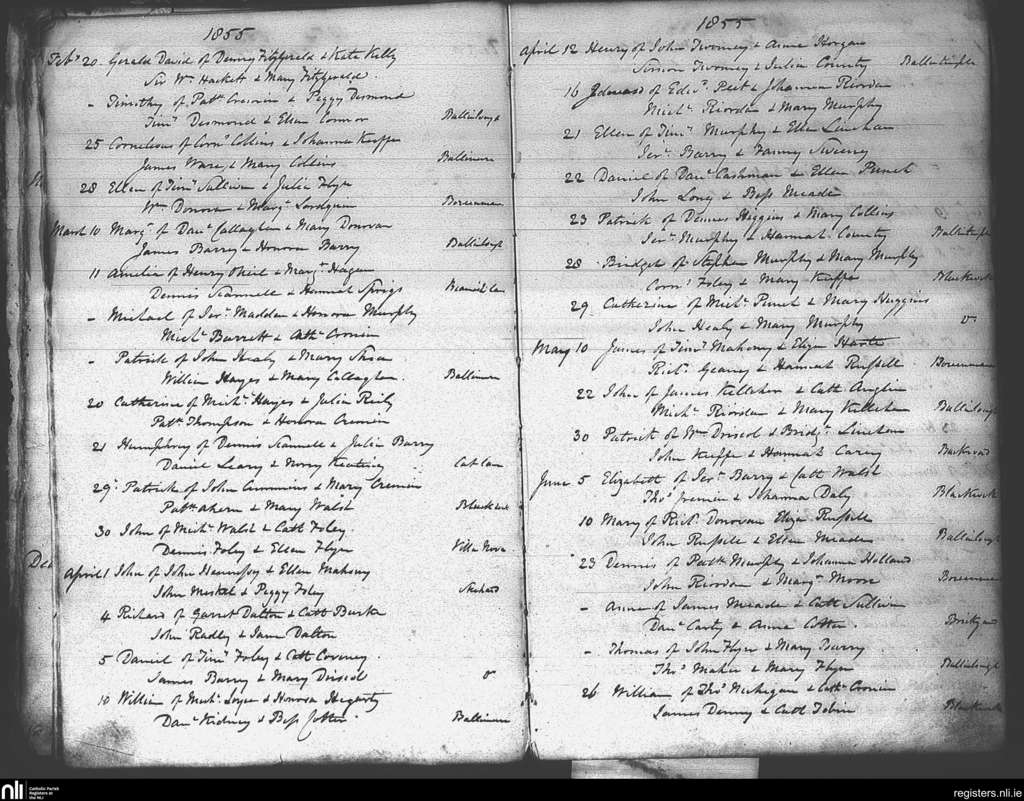 1855
Feby 20 Gerald David of Denny Fitzgerald & Kate Kelly
Sir Wm Hackett & Mary Fitzgerald.
- Timothy of Patk Cronin & Peggy Desmond
Timy Desmond & Ellen Connor Ballinlough
25 Cornelius of Corns Collins & Johanna Keeffe
James Ware & Mary Collins Ballinure
28 Ellen of Timy Sullivan & Julia Flyn
Wm Donovan & Margt Boreenmana
March 10 Margt of Danl Callaghan & Mary Donovan
James Barry & Honora Barry Ballinlough
11 Amelia of Henry ONeil & Margt Hagan
Dennis Scannell & Hannah Spriggs
- Michael of Jery Madden & Honora Murphy
Michl Barrett & Cathe Cronin
- Patrick of John Healy & Mary Shea
William Hayes & Mary Callaghan. Ballinure
20 Catherine of Michl Hayes & Julia Reily
Patk Thompson & Honora Cremin
21 Humphrey of Dennis Scannell & Julia Barry
Daniel Leary & Norry Keating Cat lane
29 Patrick of John Cummins & Mary Cremin
Patk Ahern & Mary Walsh Blackrock
30 John of Michl Walsh & Cath Foley.
Dennis Foley & Ellen Flyn Villa Nova
April 1 John of John Hennessy & Ellen Mahony
John Meskel & Peggy Foley
4 Richard of Garret Dalton & Cath Burke
John Radley & Jane Dalton
5 Daniel of Timy Foley & Cath Coveney.
James Barry & Mary Driscol
10 William of Michl Joyce & Honora Hegarty
Danl Kidney & Bess Cotter. Ballinure
1855
April 12 Henry of John Twomey & Anne Horgan
Simon Twomey & Julia County Ballintemple
16 Edward of Edwd Peet & Johanna Riordan
Michl Riordan & Mary Murphy
21 Ellen of Timy Murphy & Ellen Linehan
Jery Barry & Fanny Sweeney
22 Daniel of Danl Cashman & Ellen Punch
John Long & Bess Meade
23 Patrick of Dennis Higgins & Mary Collins
Jery Murphy & Hannah County Ballintemple
28 Bridget of Stephen Murphy & Mary Murphy
Corns Foley & Mary Keeffe Blackrock
29 Catherine of Michl Punch & Mary Huggins
John Healy & Mary Murphy
May 10 James of Timy Mahony & Eliza Harte
Richd Geaney & Hannah Russell Boreenmana
22 John of James Kelleher & Cath Anglin
Michl Riordan & Mary Kelleher Ballinlough
30 Patrick of Wm Driscol & Bridgt Linehan
John Keeffe & Hannah Carey Backroad
June 5 Elizabeth of Jery Barry & Cath Walsh
Thos Cremin & Johanna Daly Blackrock
10 Mary of Richd Donovan Eliza Russell
John Russell & Ellen Meade Ballinlough
23 Dennis of Patk Murphy & Johanna Holland
John Riordan & Margt Moore Boreenmana
- Anne of James Meade & Cath Sullivan
Danl Carty & Anne Cotter. Brickyard
- Thomas of John Flyn & Mary Barry
Thos Maher & Mary Flyn Ballinlough
26 William of Thos & Cathe Cronin
James Denny & Cath Tobin Blackrock
nli Catholic Parish
Registers at
the NLI
registers.nli.ie